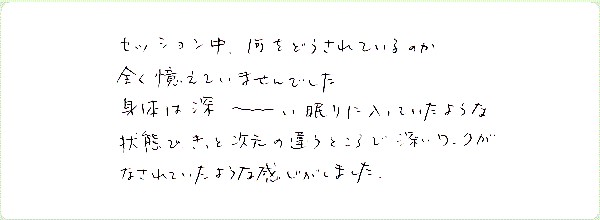 セッション中、何をどうされているのか
全く憶えていませんでした
身体は深〜〜い眠りに入っていたような
状態できっと次元の違うところで深いワークが
なされていたような感じがしました。